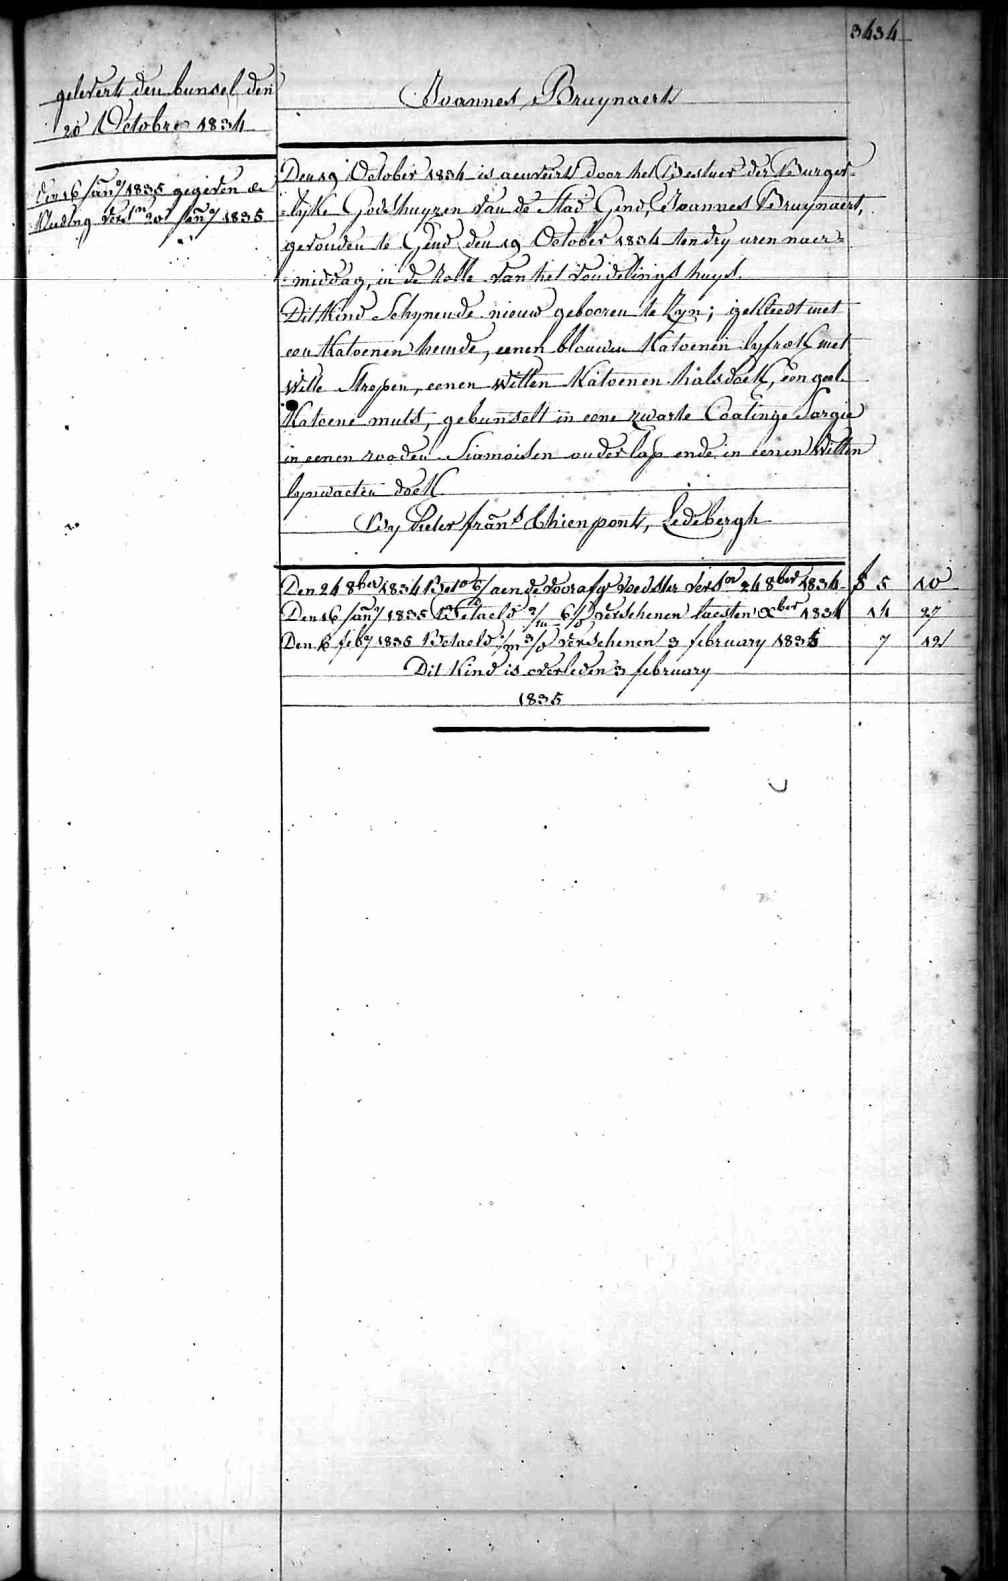 3434
gelevert den bunsel den
20 Octobre 1834
Den 16 Jany 1835 gegeven de
Kleding 1835
Joannes Bruynaert
Den 19 October 1834 is aenveirt door het Bestuer der Burger-
-lyke Godshuyzen van de Stad Gend, Joannes Bruynaert,
gevonden te Gend den 19 October 1834 ten dry uren naer-
-middag, in de Rolle van het vondelings huys.
Dit Kind Schynende nieuw gebooren te Zyn; gekleedt met
een Katoenen hemde, eenen blouwen Katoenen lyfrok met
Witte Strepen, eenen Witten Katoenen halsdoek, een geel
Katoene muts, gebunselt in eene zwarte Coatinge Sargie
in eenen rooden Siamoisen ouder lap ende in eenen Witten
lynwaeten doek
By Pieter frans Thienpont, Ledebergh
Den 24 8ber 1834 aen de voorafg voedster 24 8ber 1834 5 10
Den 16 Jany 1835 Betaeld verschenen laesten Xber 1834 14 27
Den feby 1835 Betaeld verschenen 3 february 1835 7 12
Dit Kind is overleden 3 february
1835